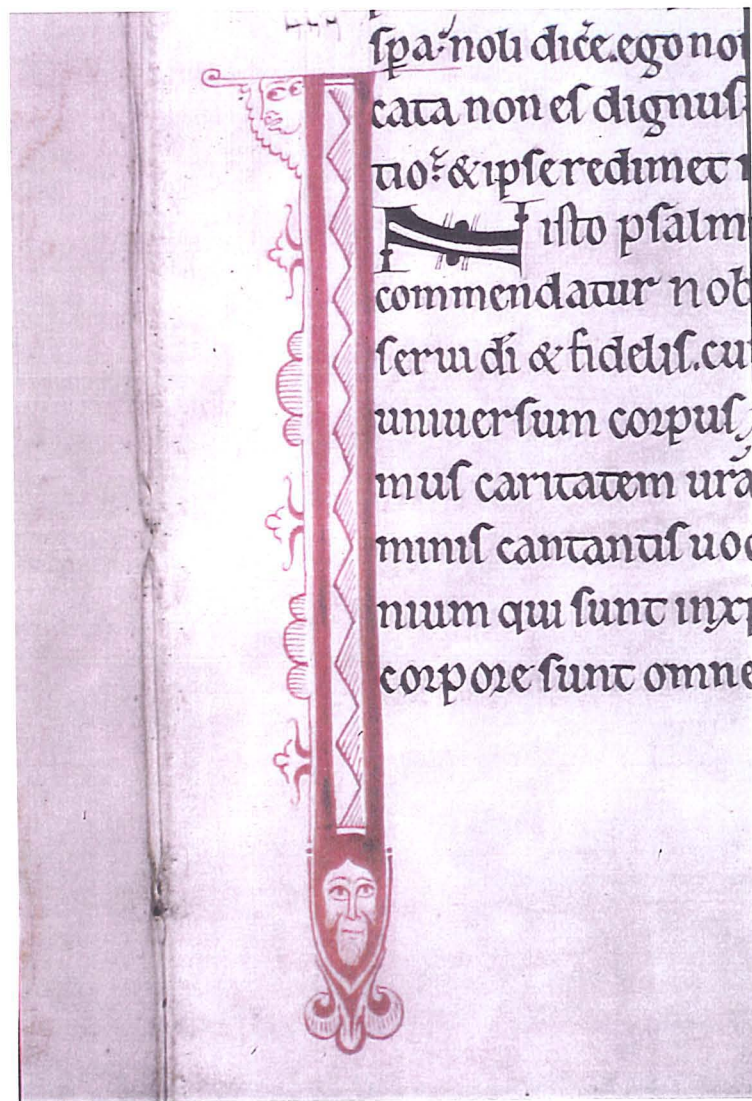 sp̄a. noli dic̄e. ego no
cata non eſ dignuſ
tio. & ipſe redimet
N iſto pſalm
commendatur nob
ſerui dī & fideliſ. cu
uniuerſum corpuſ
muſ caritatem ur̄a
miniſ cantantiſ uoc
nium qui ſunt in xp
corpore ſunt omne